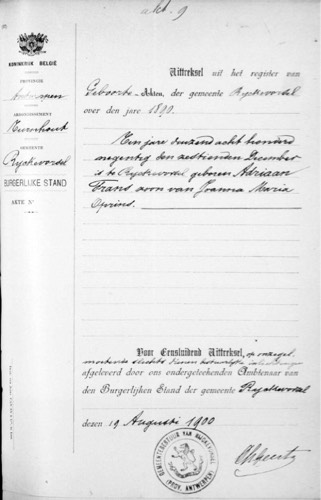 akt. 9
KONINKRIJK BELGIË
PROVINCIE
Antwerpen
ARRONDISSEMENT
Turnhout
GEMEENTE
Ryckevorsel
BURGERLIJKE STAND
AKTE N°
Uittreksel uit het register van
Geboorte-Akten, der gemeente Ryckevorsel
over den jare 1890.
Een jare duizend acht honderd
negentig den zestienden December
is te Ryckevorsel geboren Adriaan
Frans zoon van Joanna Maria
Oprins.
Voor Eensluidend Uittreksel, op ongezegel
slechts dienen
afgeleverd door ons ondergeteekenden Ambtenaar van
den Burgerlijken Stand der gemeente Ryckevorsel
dezen 19 Augusti 1900
GEMEENTEBESTUUR VAN RYCKEVORSEL
(PROV. ANTWERPEN)